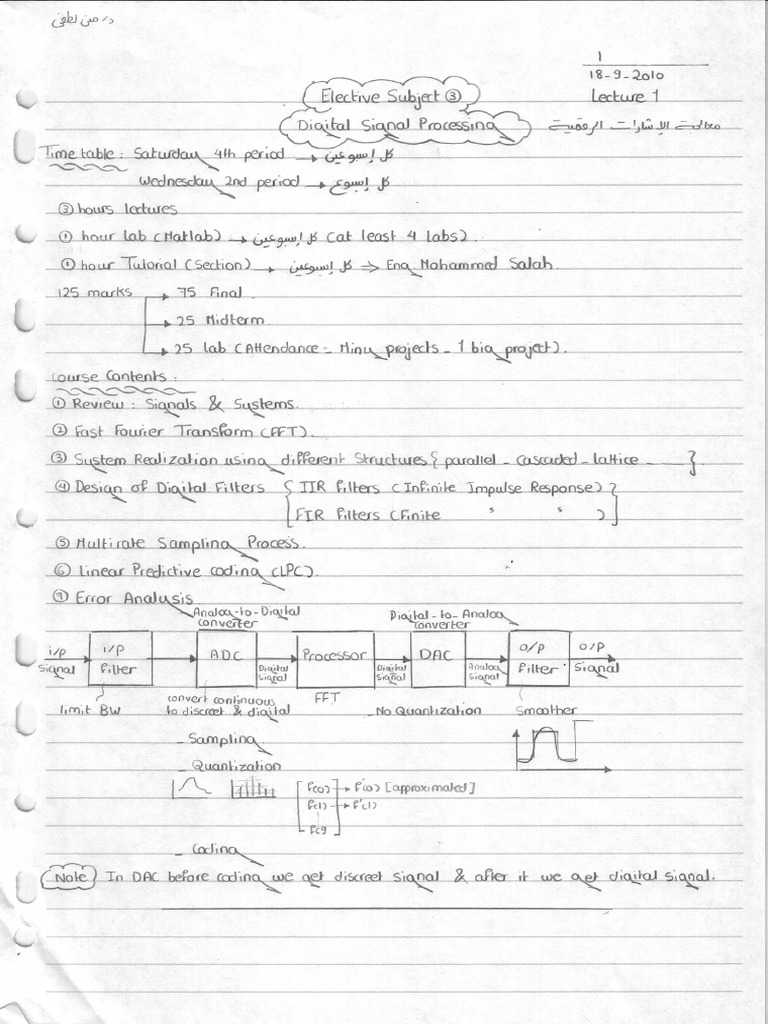 د. منى لطفى
1
18-9-2010
Elective Subject ③
Lecture 1
Digital Signal Processing
معالجة الإشارات الرقمية
Time table : Saturday 4th period → كل إسبوعين
Wednesday 2nd period → كل إسبوع
③ hours lectures
① hour lab (Matlab) → كل إسبوعين (at least 4 labs).
① hour Tutorial (Section) → كل إسبوعين ⇒ Eng Mohammed Salah.
125 marks → 75 Final.
→ 25 Midterm.
→ 25 lab (Attendance - Miny projects - 1 big project).
Course Contents :
① Review : Signals & Systems.
② Fast Fourier Transform (FFT).
③ System Realization using different Structures { parallel - cascaded - lattice - }
④ Design of Digital Filters { IIR filters (Infinite Impulse Response) }
FIR filters (finite " " )
⑤ Multirate Sampling Process.
⑥ Linear Predictive coding (LPC).
⑦ Error Analysis
Analog-to-Digital converter
Digital-to-Analog converter
i/p Signal
i/p Filter
ADC
Digital Signal
Processor
Digital Signal
DAC
Analog Signal
o/p Filter
o/p Signal
limit BW
convert continuous to discreet & digital
FFT
- No Quantization
Smoother
- Sampling
- Quantization
f(0) → f'(0) [approximated]
f(1) → f'(1)
f(9
- Coding
Note In DAC before coding we get discreet signal & after it we get digital signal.